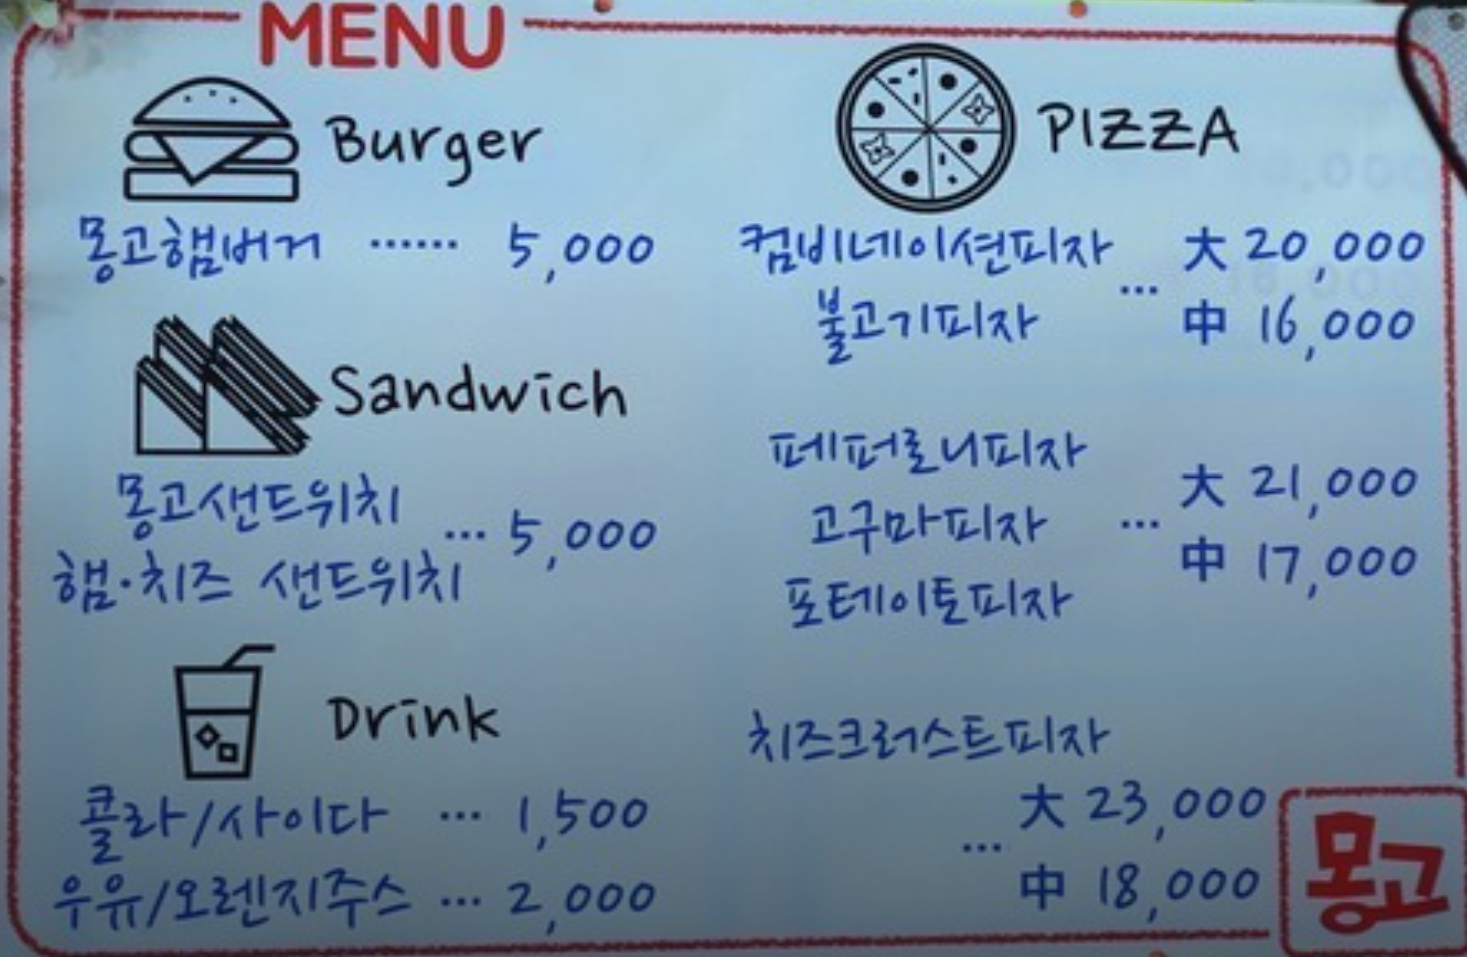 MENU
Burger
몽고햄버거 ...... 5,000
Sandwich
몽고샌드위치
... 5,000
햄·치즈 샌드위치
Drink
콜라/사이다 ... 1,500
우유/오렌지주스 ... 2,000
PIZZA
컴비네이션피자 大 20,000
...
불고기피자 中 16,000
페퍼로니피자
大 21,000
고구마피자 ...
中 17,000
포테이토피자
치즈크러스트피자
大 23,000
...
中 18,000
몽고